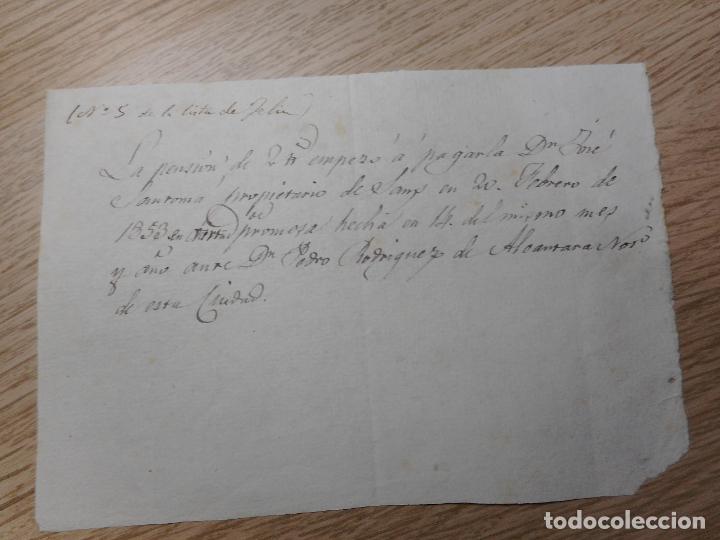 (Nº 5 de la lista de Feliu)
La pensión de 2 tt empezó á pagarla Dn José
Santomá propietario de Sans en 20. Febrero de
1853 en virtud de promesa hecha en 14. del mismo mes
y año ante Dn Pedro Rodriguez de Alcantara Noto
de esta Ciudad.
todocoleccion.net